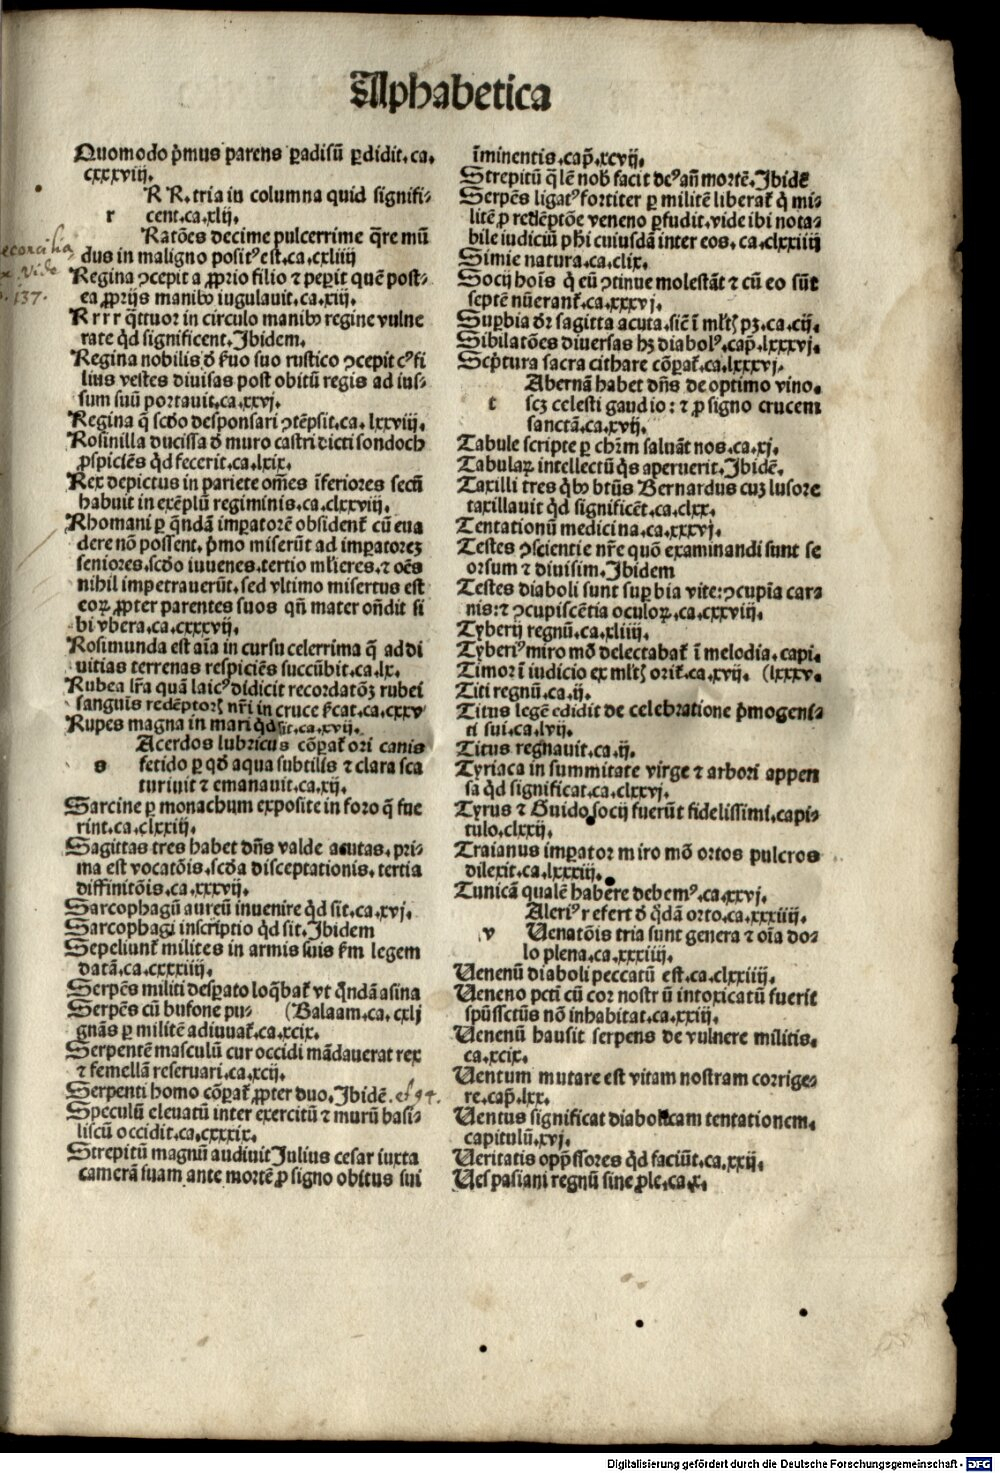 Alphabetica
Quomodo p̄mus parens ꝑadisū ꝑdidit.ca.
cxxxviij.
R R.tria in columna quid signifi-
r cent.ca.xlij.
Ratōes decime pulcerrime q̄re mū
dus in maligno positꝰ est.ca.cxliiij
Regina ꝯcepit a ꝓprio filio ⁊ peꝑit quē post-
ea ꝓprijs manibꝰ iugulauit.ca.xiij.
R r r r q̄ttuor in circulo manibꝰ regine vulne
rate qd̄ significent.Ibidem.
Regina nobilis d̄ ẜuo suo rustico ꝯcepit cꝰ fi
lius vestes diuisas post obitū regis ad ius-
sum suū portauit.ca.xxvj.
Regina q̄ scd̄o desponsari ꝯtēpsit.ca.lxxviij.
Rosinilla ducissa d̄ muro castri dicti sondoch
ꝓspiciēs qd̄ fecerit.ca.xlix.
Rex depictus in pariete om̄es īferiores secū
habuit in exēplū regiminis.ca.clxxviij.
Rhomani ꝑ q̄ndā imꝑatorē obsidenť cū eua
dere nō possent.p̄mo miserūt ad imꝑatoreꝫ
seniores.scd̄o iuuenes.tertio ml̄ieres.⁊ oēs
nihil impetrauerūt.sed vltimo misertus est
eoꝝ ꝓpter parentes suos qn̄ mater on̄dit si
bi vbera.ca.cxxxvij.
Rosimunda est aīa in cursu celerrima q̄ ad di
uitias terrenas respiciēs succūbit.ca.lx.
Rubea lr̄a quā laicꝰ didicit recordatōꝫ rubei
sanguis redēptorꝭ nr̄i in cruce ẜcat.ca.cxxv
Rupes magna in mari qd̄ sit.ca.xvij.
Acerdos lubricus cōꝑať ori canis
s fetido ꝑ qd̄ aqua subtilis ⁊ clara sca
turiuit ⁊ emanauit.ca.xij.
Sarcine ꝑ monachum exposite in foro q̄ fue
rint.ca.clxxiij.
Sagittas tres habet dn̄s valde acutas.pri-
ma est vocatōis.scd̄a disceptationis.tertia
diffinitōis.ca.xxxvij.
Sarcophagū aureū inuenire qd̄ sit.ca.xvj.
Sarcophagi inscriptio qd̄ sit.Ibidem
Sepeliunť milites in armis suis ẜm legem
datā.ca.cxxxiiij.
Serpēs militi desꝑato loq̄bať vt q̄ndā asina
Serpēs cū bufone pu- (Balaam.ca.cxlj
gnās ꝑ militē adiuuať.ca.xcix.
Serpentē masculū cur occidi mādauerat rex
⁊ femellā reseruari.ca.xcij.
Serpenti homo cōꝑať ꝓpter duo.Ibidē.
Speculū eleuatū inter exercitū ⁊ murū basi-
liscū occidit.ca.cxxxix.
Strepitū magnū audiuit Julius cesar iuxta
camerā suam ante mortē ꝓ signo obitus sui
īminentis.cap̄.xcvij.
Strepitū q̄lē nob̄ facit deꝰ an̄ mortē.Ibidē
Serpēs ligatꝰ fortiter ꝑ militē liberať q̄ mi-
litē ꝓ redēptōe veneno ꝑfudit.vide ibi nota-
bile iudiciū ph̄i cuiusdā inter eos.ca.clxxiiij
Simie natura.ca.clix.
Socij hoīs q̄ eū ꝯtinue molestāt ⁊ cū eo sūt
septē nūeranť.ca.xxxvj.
Suꝑbia dr̄ sagitta acuta.sic̄ ī ml̄tꝭ pꝫ.ca.cij.
Sibilatōes diuersas hꝫ diabolꝰ.cap̄.lxxxvj.
Sc̄ptura sacra cithare cōꝑať.ca.lxxxvj.
Abernā habet dn̄s de optimo vino.
t scꝫ celesti gaudio: ⁊ ꝓ signo crucem
sanctā.ca.xvij.
Tabule scripte ꝑ chr̄m saluāt nos.ca.xj.
Tabulaꝝ intellectū q̄s aperuerit.Ibidē.
Taxilli tres q̄bꝰ btūs Bernardus cuꝫ lusore
taxillauit qd̄ significēt.ca.clxx.
Tentationū medicina.ca.xxxvj.
Testes ꝯscientie nr̄e quō examinandi sunt se
orsum ⁊ diuisim.Ibidem
Testes diaboli sunt suꝑbia vite:ꝯcupīa car-
nis:⁊ ꝯcupiscētia oculoꝝ.ca.cxxviij.
Tyberij regnū.ca.xliiij.
Tyberiꝰ miro mō delectabať ī melodia.capi.
Timor ī iudicio ex ml̄tꝭ oriť.ca.xvij. (lxxxv.
Titi regnū.ca.ij.
Titus legē edidit de celebratione p̄mogeni-
ti sui.ca.lvij.
Titus regnauit.ca.ij.
Tyriaca in summitate virge ⁊ arbori appen
sa qd̄ significat.ca.clxxvj.
Tyrus ⁊ Guido socij fuerūt fidelissimi.capi-
tulo.clxxij.
Traianus imꝑator miro mō ortos pulcros
dilexit.ca.lxxxiij.
Tunicā qualē habere debemꝰ.ca.xxvj.
Aleriꝰ refert d̄ q̄dā orto.ca.xxxiiij.
v Uenatōis tria sunt genera ⁊ oīa do-
lo plena.ca.xxxiiij.
Uenenū diaboli peccatū est.ca.clxxiiij.
Ueneno pctī cū cor nostrū intoxicatū fuerit
spūssctūs nō inhabitat.ca.xxiij.
Uenenū hausit serpens de vulnere militis.
ca.xcix.
Uentum mutare est vitam nostram corrige-
re.cap̄.lxx.
Uentus significat diabolicam tentationem.
capitulū.xvj.
Ueritatis opp̄ssores qd̄ faciūt.ca.xxij.
Uespasiani regnū sine ꝓle.ca.x.
137.
Digitalisierung gefördert durch die Deutsche Forschungsgemeinschaft - DFG